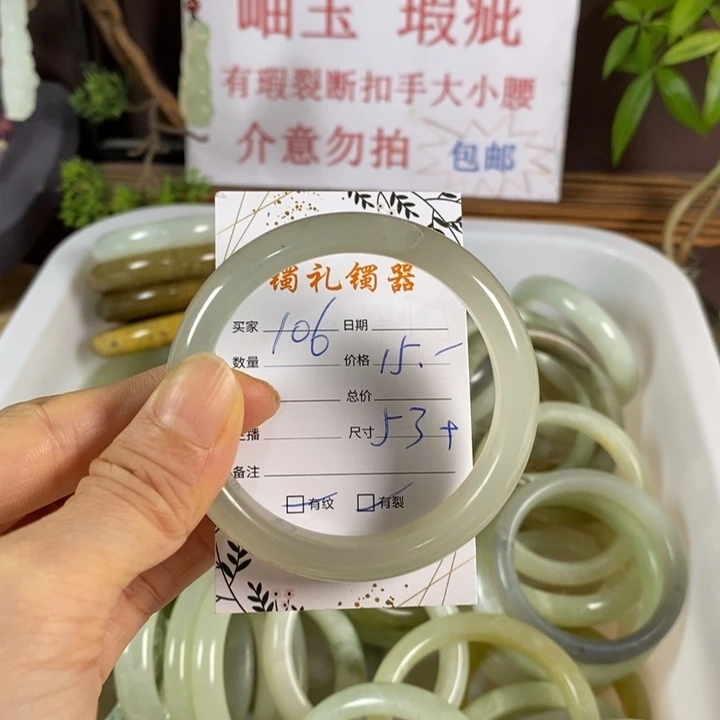 岫玉 瑕疵
有瑕裂断扣手大小腰
介意勿拍 包邮
镯礼镯器
买家 106 日期
数量 价格 15.-
总价
主播 尺寸 53+
备注
有纹 有裂